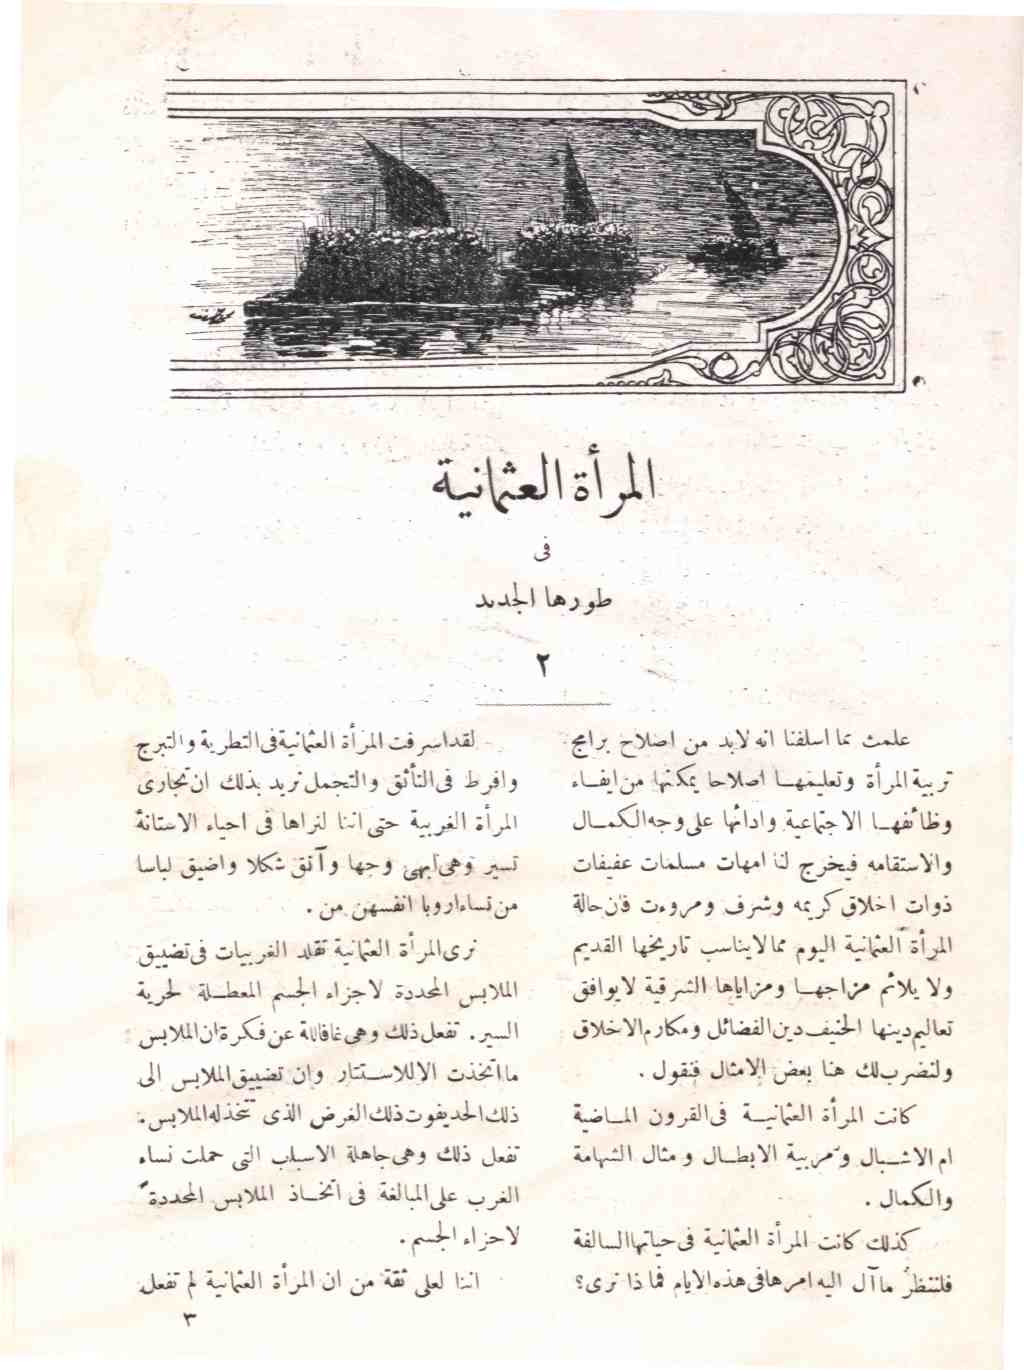 المرأة العثمانية
فى
طورها الجديد
٢
علمت مما اسلفنا انه لابد من اصلاح برامج
تربية المرأة وتعليمهـا اصلاحا يمكنها من ايفـاء
وظائفهـا الاجتماعية وادائها على وجه الكمـال
والاستقامه فيخرج لنا امهات مسلمات عفيفات
ذوات اخلاق كريمه وشرف ومروءت فان حالة
المرأة العثمانية اليوم ممالايناسب تاريخها القديم
ولا يلائم مزاجهـا ومزاياها الشرقية لايوافق
تعاليم دينها الحنيف دين الفضائل ومكارم الاخلاق
ولنضرب لك هنا بعض الامثال فنقول .
كانت المرأة العثمانيـة فى القرون المـاضية
ام الاشـبال ومربية الابطـال ومثال الشهامة
والكمال .
كذلك كانت المرأة العثمانية فى حياتها السالفة
فلننظر ماآل اليه امرها فى هذه الايام فماذا نرى؟
لقد اسرفت المرأة العثمانية فى التطرية والتبرج
وافرط فى التأنق والتجمل تريد بذلك ان تجارى
المرأة الغربية حتى اننا لنراها فى احياء الاستانة
تسير وهى ابهى وجها وآنق شكلا واضيق لباسا
من نساء اروبا انفسهن من .
نرى المرأة العثمانية تقلد الغربيات فى تضييق
الملابس المحددة لاجزاء الجسم المعطـلة لحرية
السير . تفعل ذلك وهى غافلة عن فكرة ان الملابس
مااتخذت الا للاسـتتار وان تضييق الملابس الى
ذلك الحد يفوت ذلك الغرض الذى تتخذله الملابس .
تفعل ذلك وهى جاهلة الاسباب التى حملت نساء
الغرب على المبالغة فى اتخـاذ الملابس المحددة
لاجزاء الجسم .
اننا لعلى ثقة من ان المرأة العثمانية لم تفعل
٣